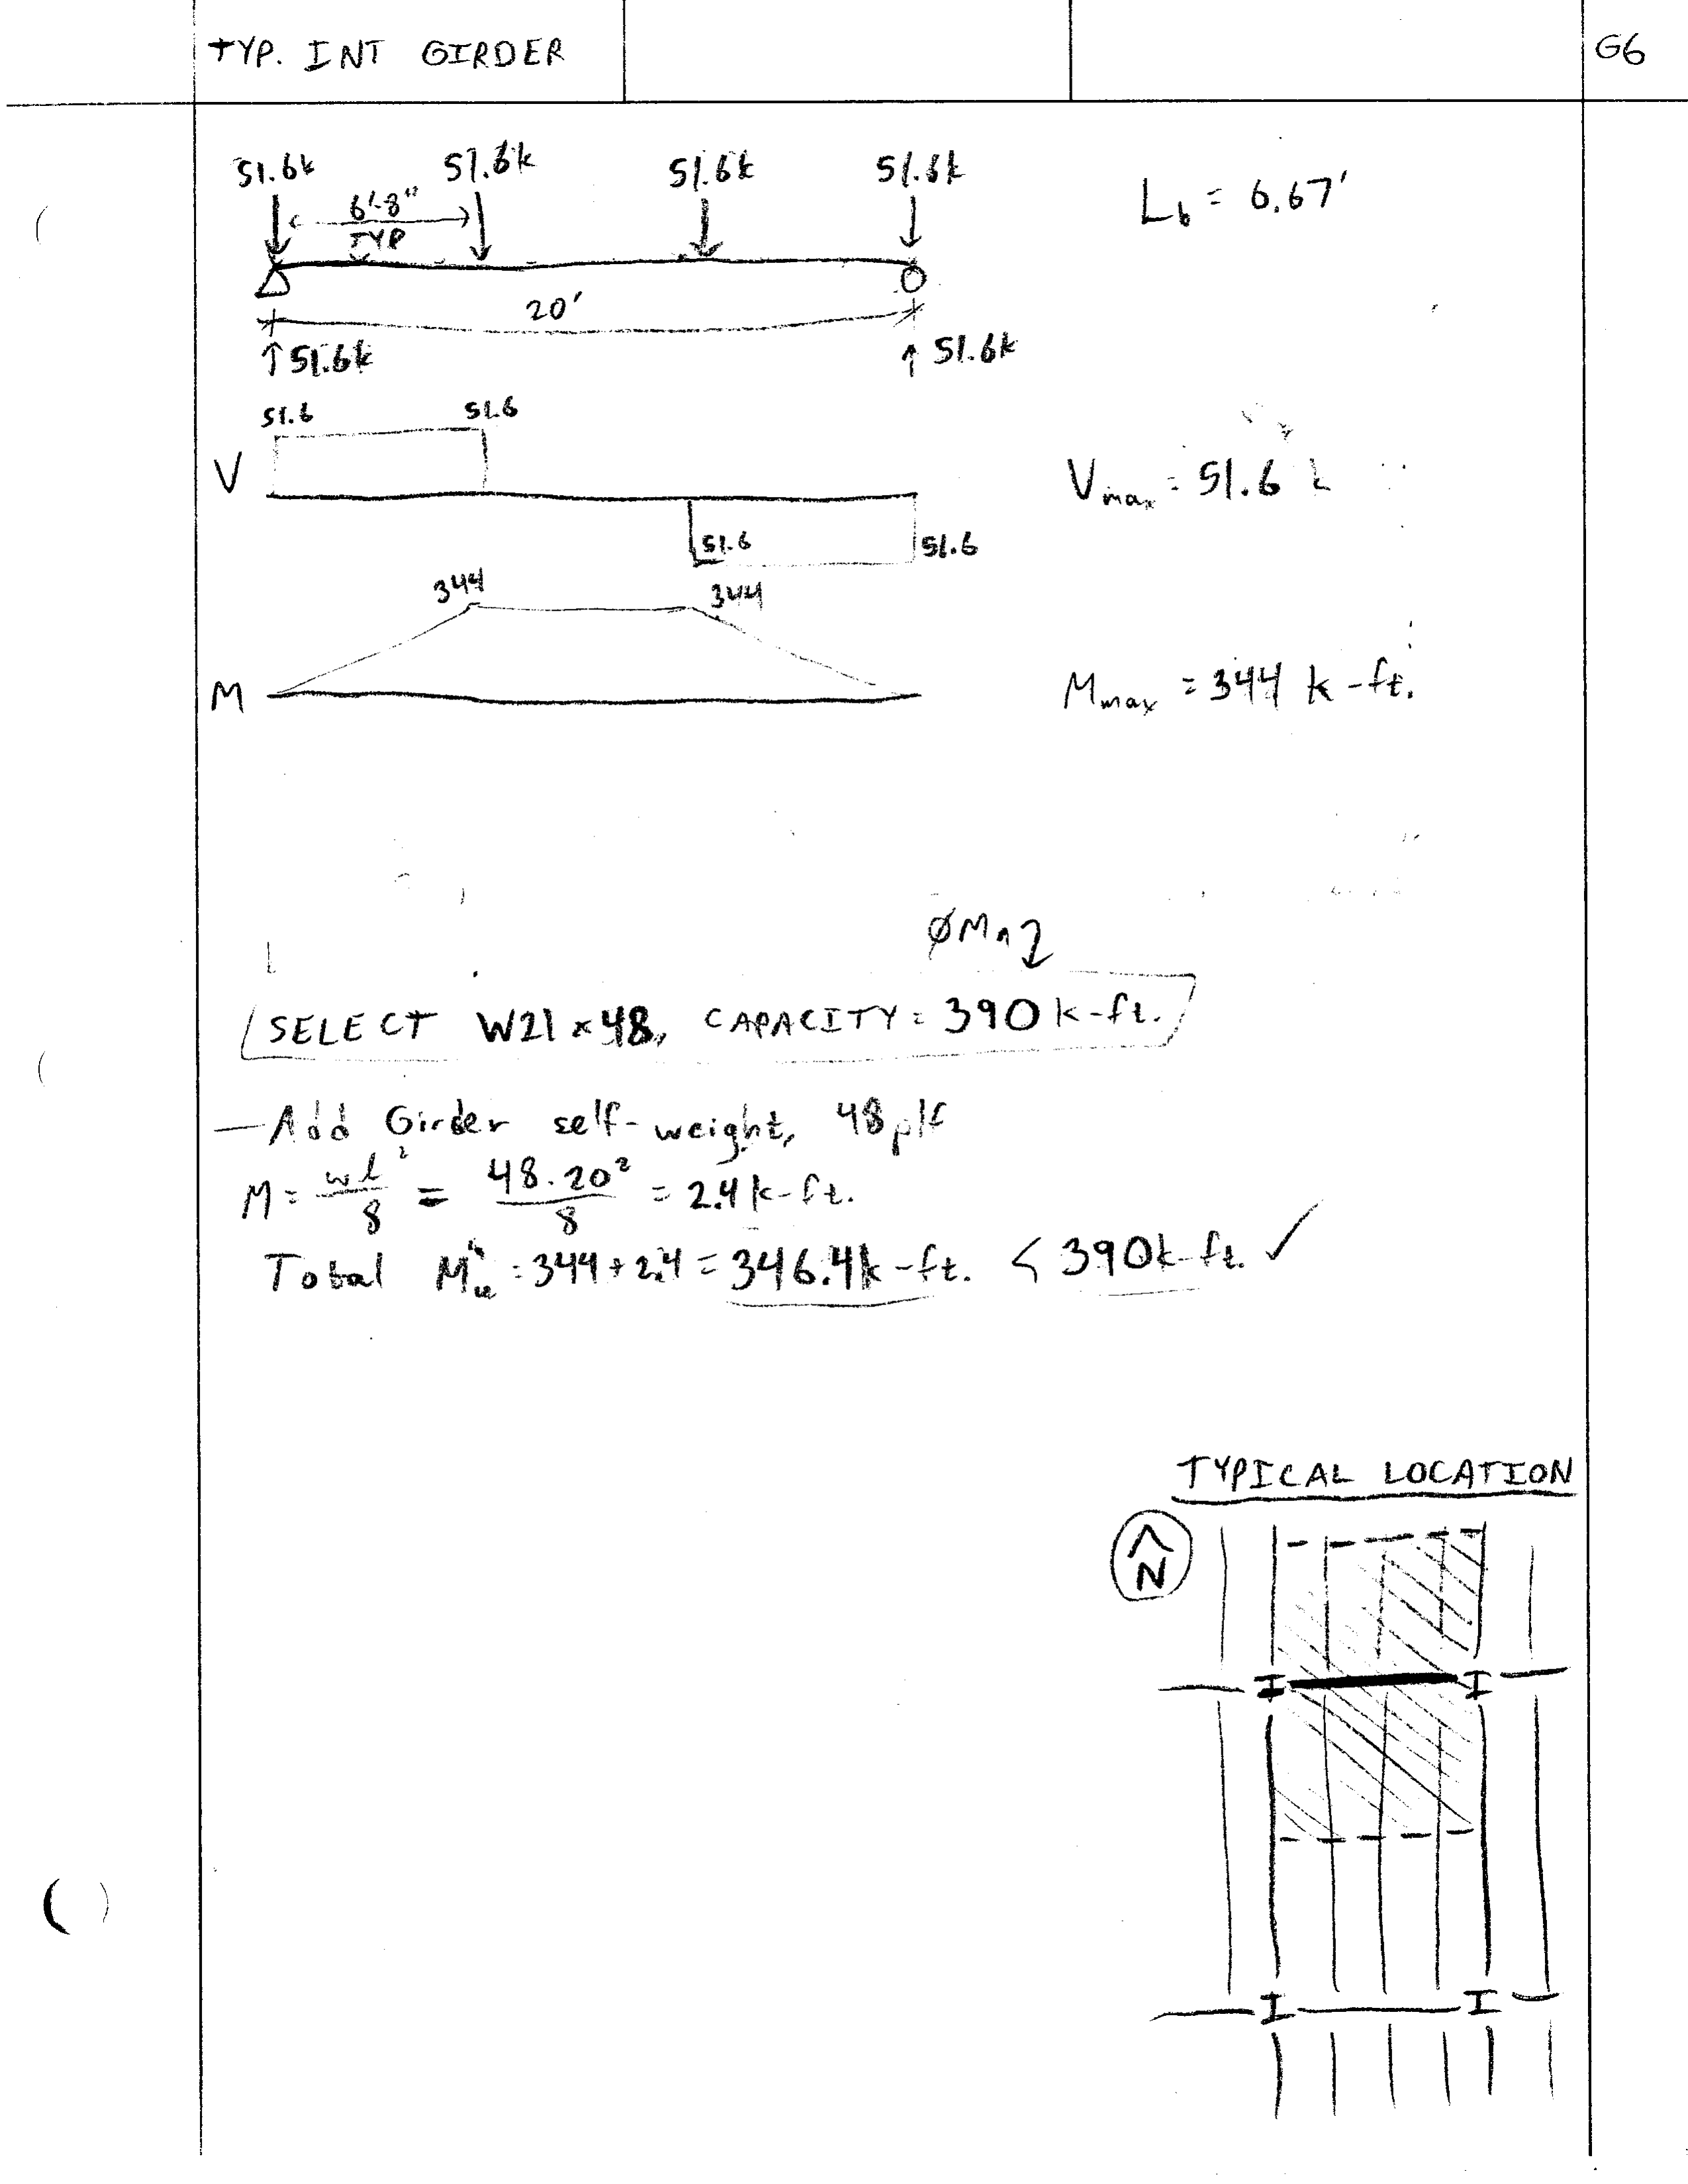 TYP. INT GIRDER
G6
51.6k 51.6k 51.6k 51.6k
6'-8"
TYP
L_b = 6.67'
20'
↑51.6k ↑ 51.6k
51.6 51.6
V
V_max = 51.6 k
51.6 51.6
344 344
M
M_max = 344 k-ft.
ØMn
SELECT W21 x 48, CAPACITY = 390 k-ft.
— Add Girder self-weight, 48 plf
M = wl²/8 = 48·20²/8 = 2.4 k-ft.
Total M = 344 + 2.4 = 346.4k-ft. < 390k-ft. ✓
TYPICAL LOCATION
N
I I
I I